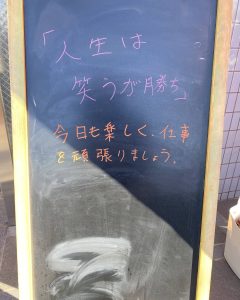 「人生は
笑うが勝ち」
今日も楽しく、仕事
を頑張りましょう。